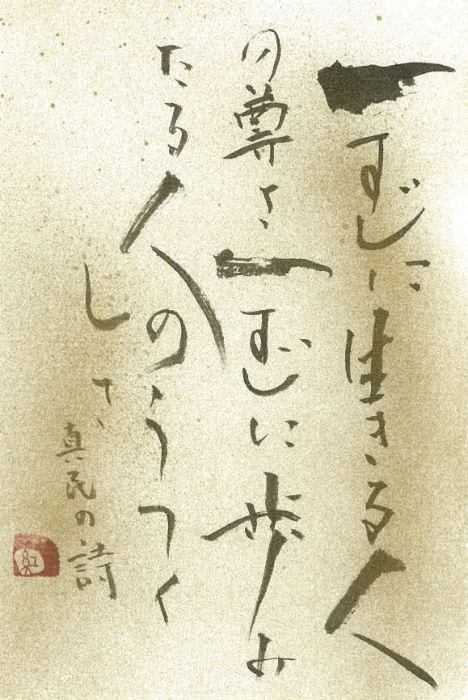 一すじに生きる人
の尊さ一すじに歩み
たる人のうつく
しさ
真民の詩
紅